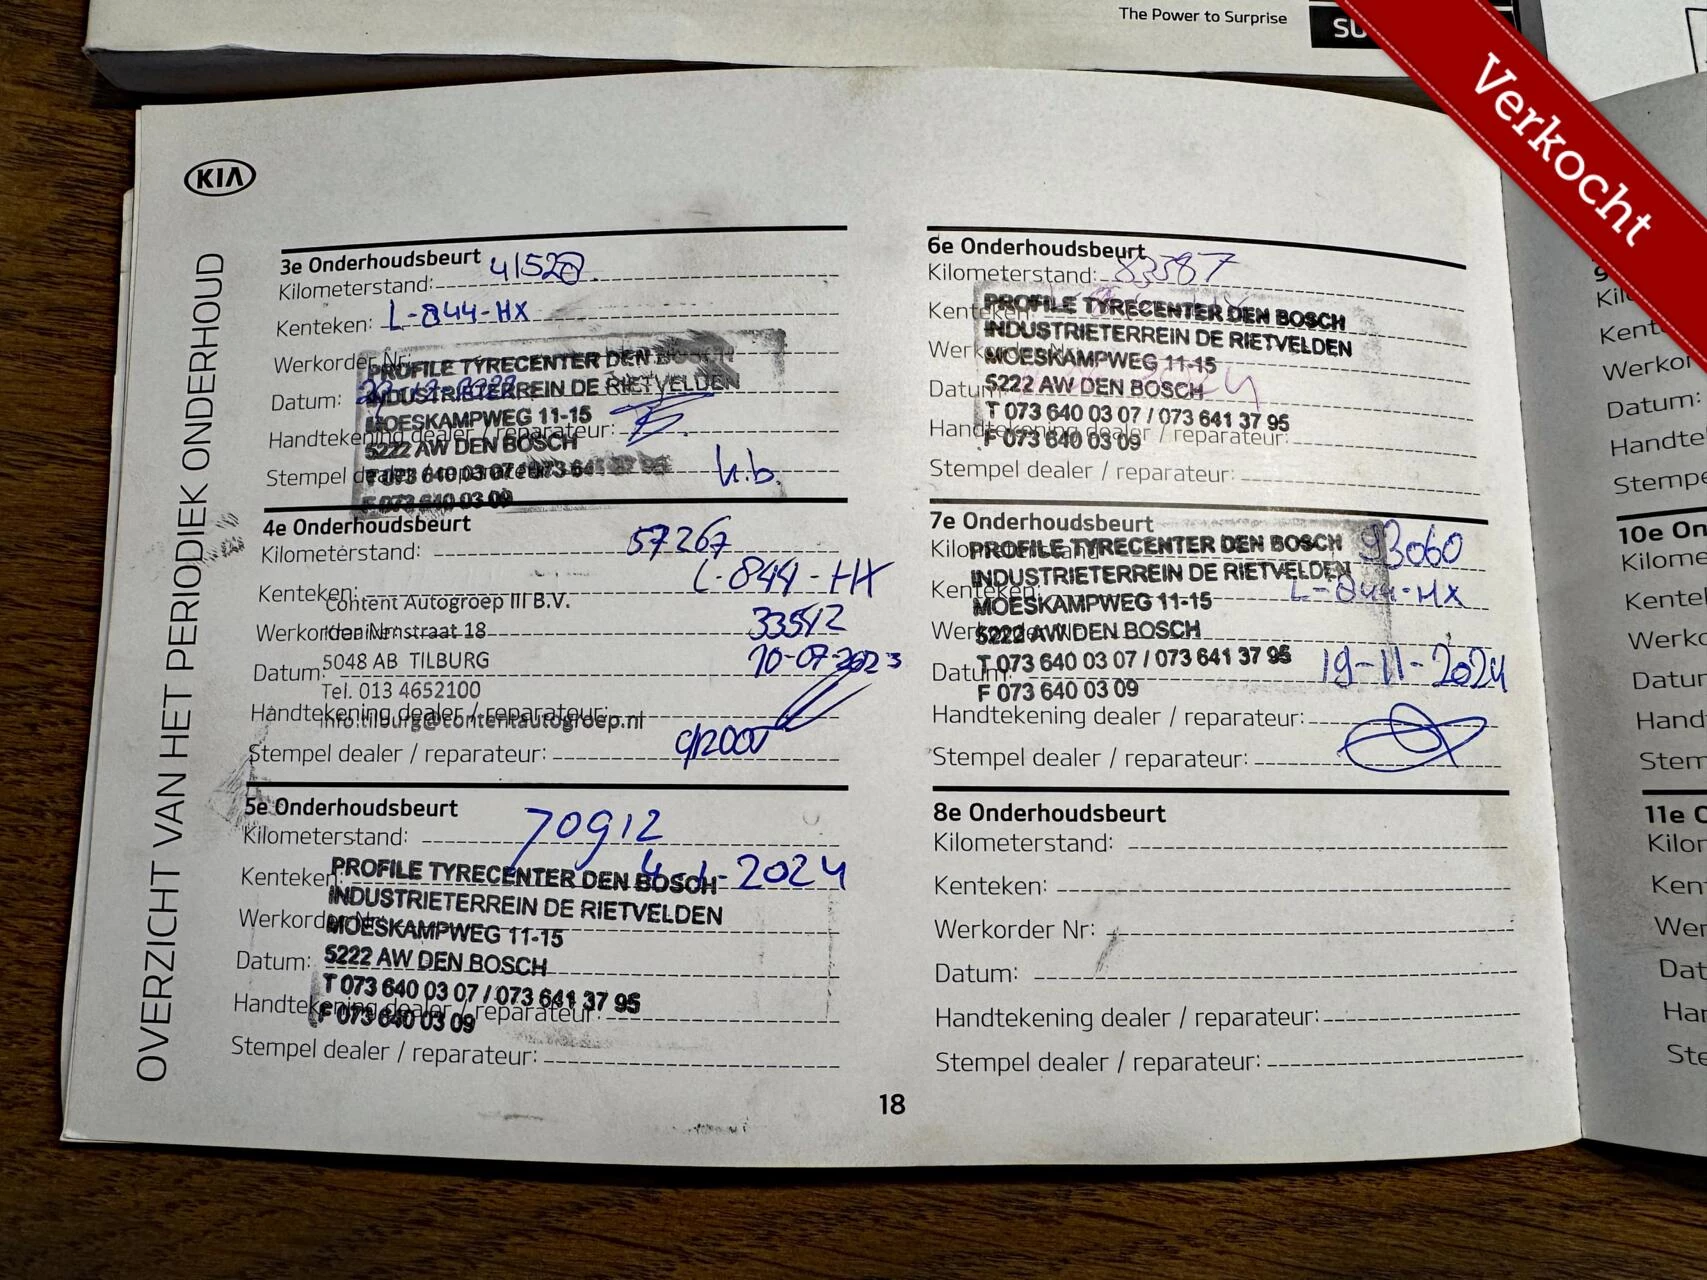 The Power to Surprise
SU
Verkocht
KIA
OVERZICHT VAN HET PERIODIEK ONDERHOUD
3e Onderhoudsbeurt
Kilometerstand: 41528
Kenteken: L-844-HX
Werkorder Nr:
PROFILE TYRECENTER DEN BOSCH
Datum:
INDUSTRIETERREIN DE RIETVELDEN
MOESKAMPWEG 11-15
Handtekening dealer / reparateur:
5222 AW DEN BOSCH
Stempel dealer / reparateur:
T 073 640 03 07 / 073 641 37 95
h.b.
F 073 640 03 09
4e Onderhoudsbeurt
Kilometerstand: 57267
Kenteken: L-844-HX
Content Autogroep III B.V.
Werkorder Nr: 33512
straat 18
Datum: 10-07-2023
5048 AB TILBURG
Tel. 013 4652100
Handtekening dealer / reparateur:
info.tilburg@contentautogroep.nl
Stempel dealer / reparateur:
5e Onderhoudsbeurt
Kilometerstand: 70912
Kenteken: 4-1-2024
PROFILE TYRECENTER DEN BOSCH
INDUSTRIETERREIN DE RIETVELDEN
Werkorder Nr:
MOESKAMPWEG 11-15
Datum:
5222 AW DEN BOSCH
T 073 640 03 07 / 073 641 37 95
Handtekening dealer / reparateur:
F 073 640 03 09
Stempel dealer / reparateur:
6e Onderhoudsbeurt
Kilometerstand: 83587
Kenteken:
PROFILE TYRECENTER DEN BOSCH
INDUSTRIETERREIN DE RIETVELDEN
MOESKAMPWEG 11-15
Datum:
5222 AW DEN BOSCH
T 073 640 03 07 / 073 641 37 95
Handtekening dealer / reparateur:
F 073 640 03 09
Stempel dealer / reparateur:
7e Onderhoudsbeurt
93060
PROFILE TYRECENTER DEN BOSCH
INDUSTRIETERREIN DE RIETVELDEN
Kenteken: L-844-HX
MOESKAMPWEG 11-15
5222 AW DEN BOSCH
T 073 640 03 07 / 073 641 37 95
Datum: 19-11-2024
F 073 640 03 09
Handtekening dealer / reparateur:
Stempel dealer / reparateur:
8e Onderhoudsbeurt
Kilometerstand:
Kenteken:
Werkorder Nr:
Datum:
Handtekening dealer / reparateur:
Stempel dealer / reparateur:
18
Kent
Werkor
Datum:
Handte
Stempe
10e On
Kilome
Kentek
Werko
Datun
Hand
Stem
11e O
Kilor
Ken
Wer
Dat
Har
Ste